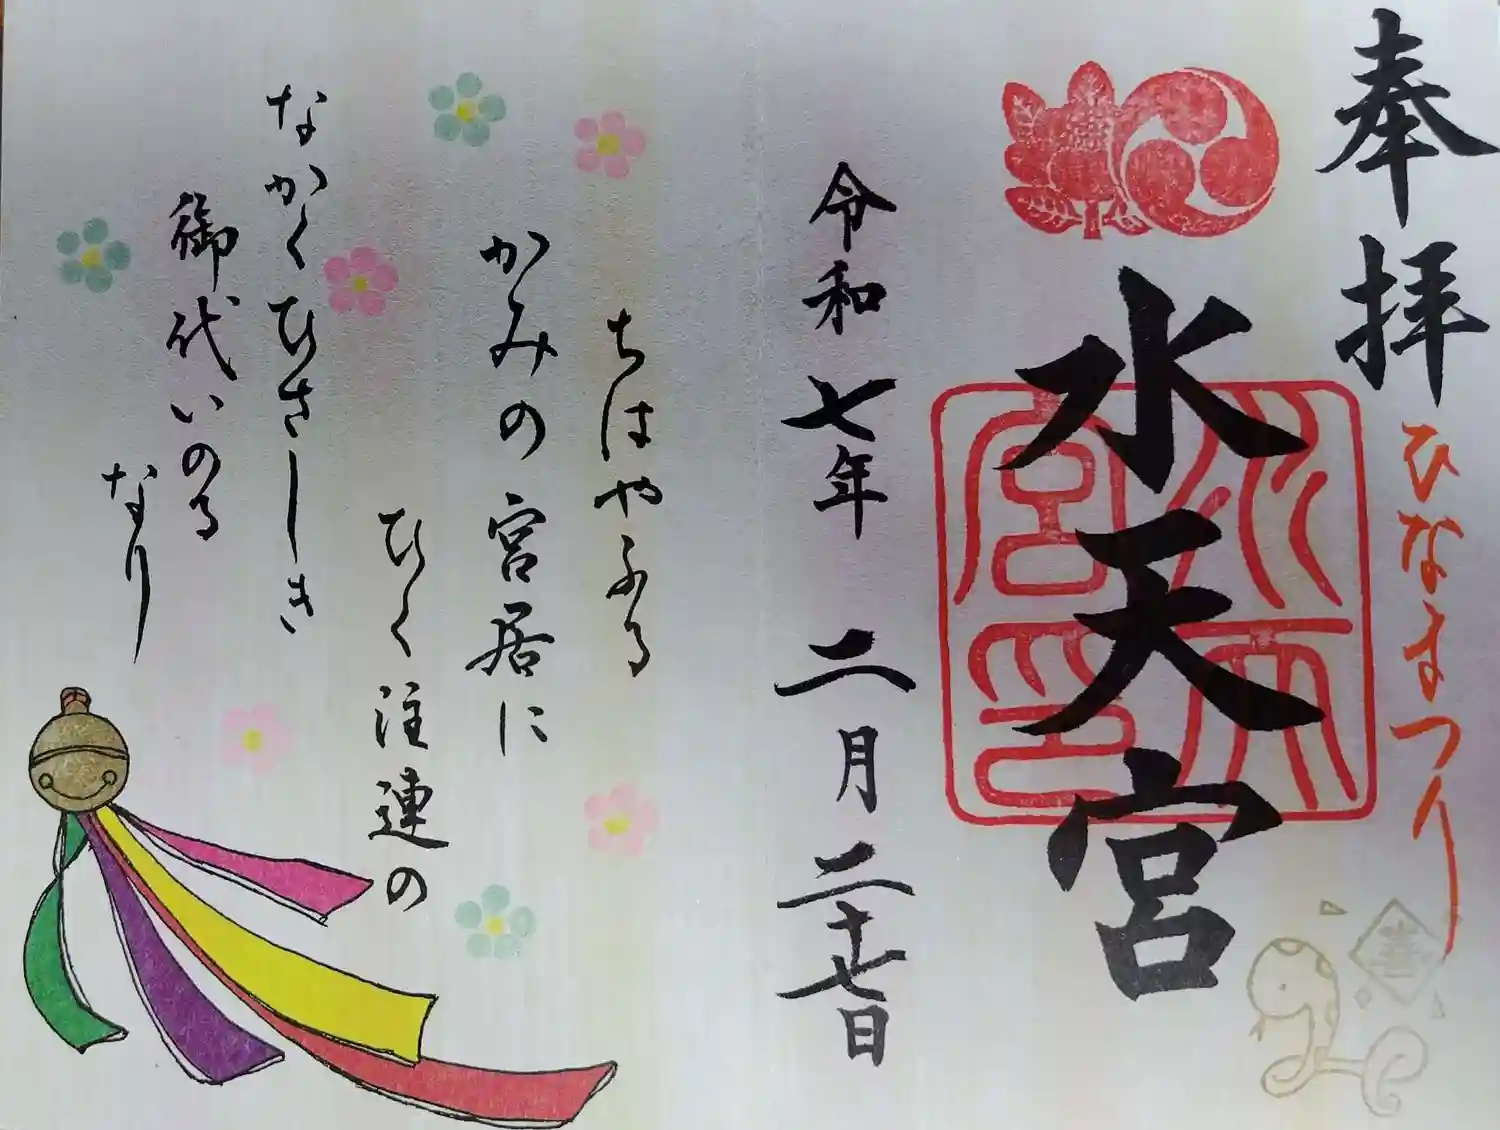 奉拝
ひなまつり
水天宮
水天宮印
令和七年 二月 二十七日
ちはやふる
かみの宮居に
ひく注連の
なかくひさしき
御代いのる
なり